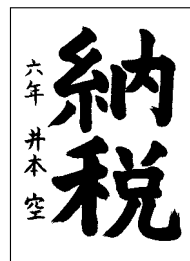 納税
六年 井本 空